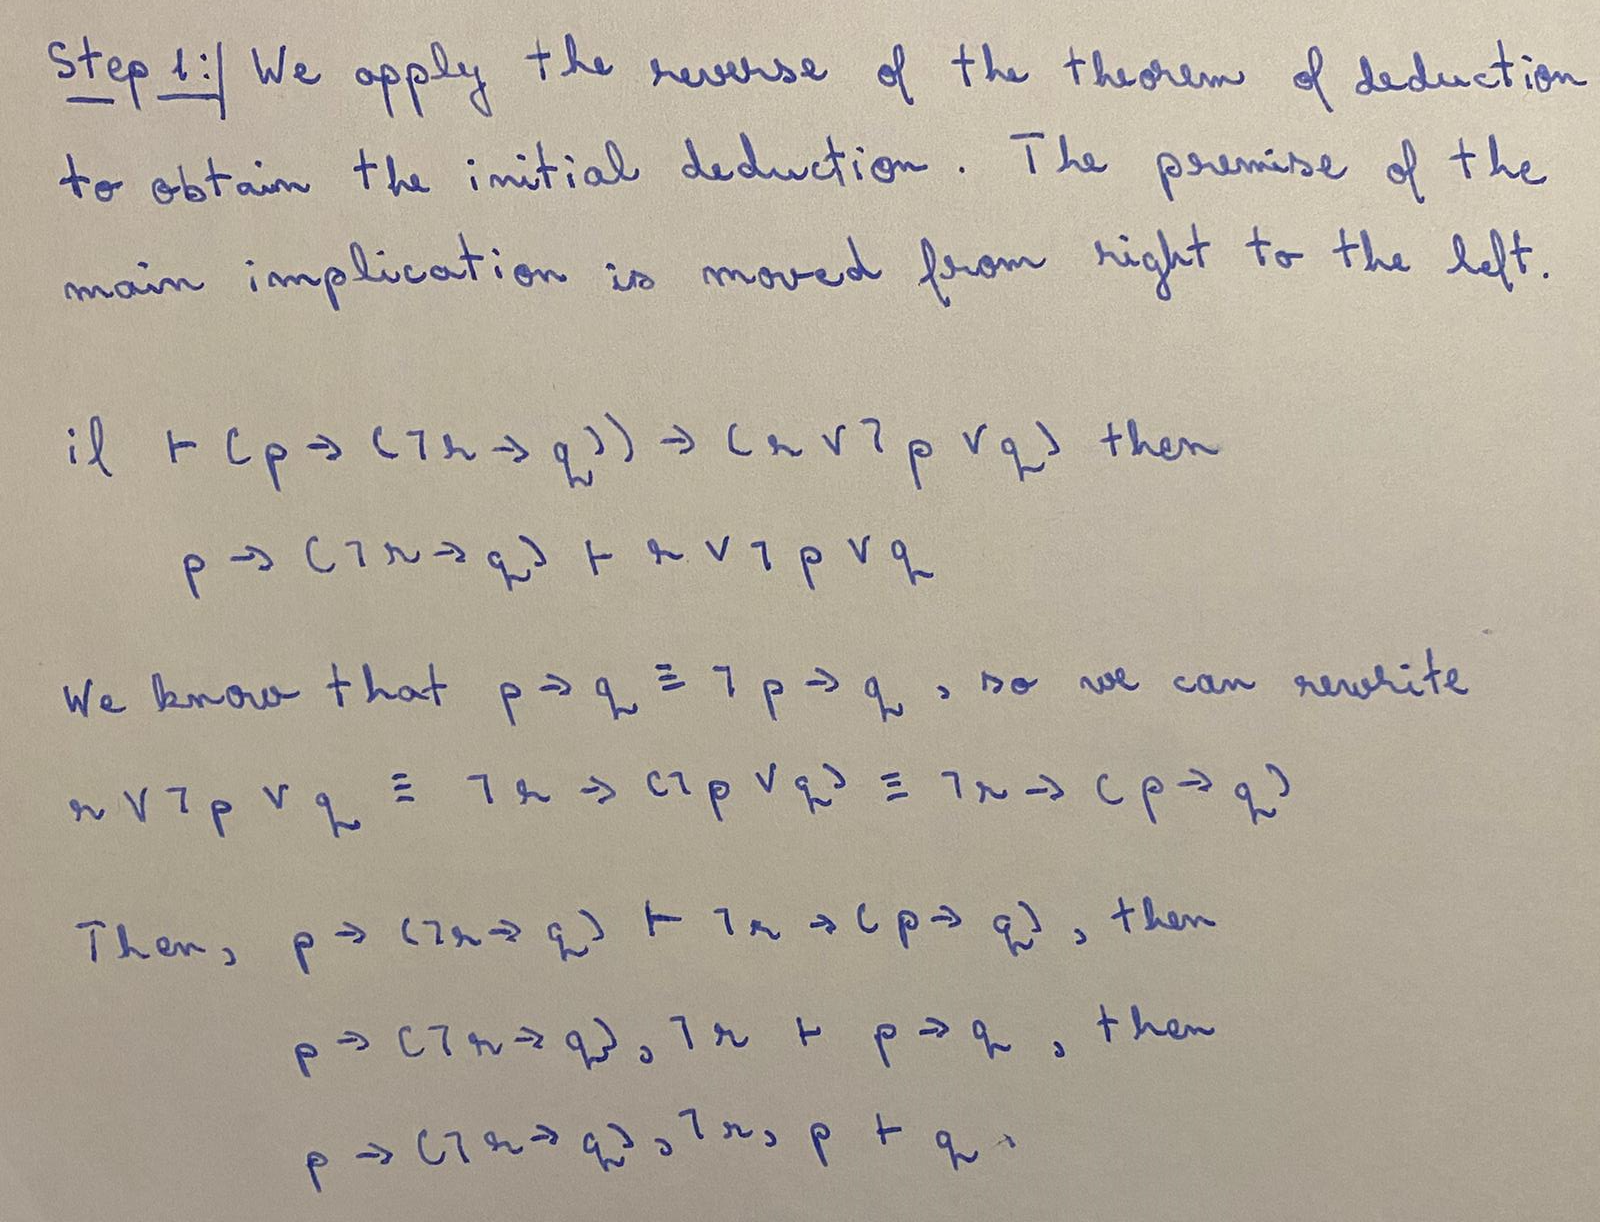 Step 1:| We apply the reverse of the theorem of deduction
to obtain the initial deduction. The premise of the
main implication is moved from right to the left.
if ⊢ (p → (¬r → q)) → (r ∨ ¬p ∨ q) then
p → (¬r → q) ⊢ r ∨ ¬p ∨ q
We know that p → q ≡ ¬p → q, so we can rewrite
r ∨ ¬p ∨ q ≡ ¬r → (¬p ∨ q) ≡ ¬r → (p → q)
Then, p → (¬r → q) ⊢ ¬r → (p → q), then
p → (¬r → q), ¬r ⊢ p → q, then
p → (¬r → q), ¬r, p ⊢ q.